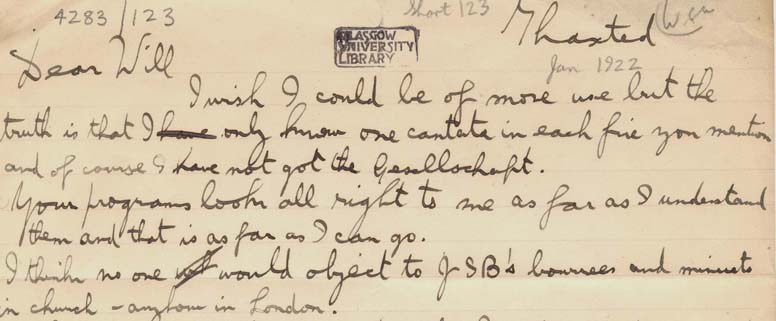 4283/123
Short 123
GLASGOW
UNIVERSITY
LIBRARY
Thaxted
Jan 1922
Dear Will
I wish I could be of more use but the
truth is that I have only know one cantata in each five you mention
and of course I have not got the Gesellschaft.
Your programs looks all right to me as far as I understand
them and that is as far as I can go.
I think no one would object to J S B's bourrees and minuets
in church – anyhow in London.